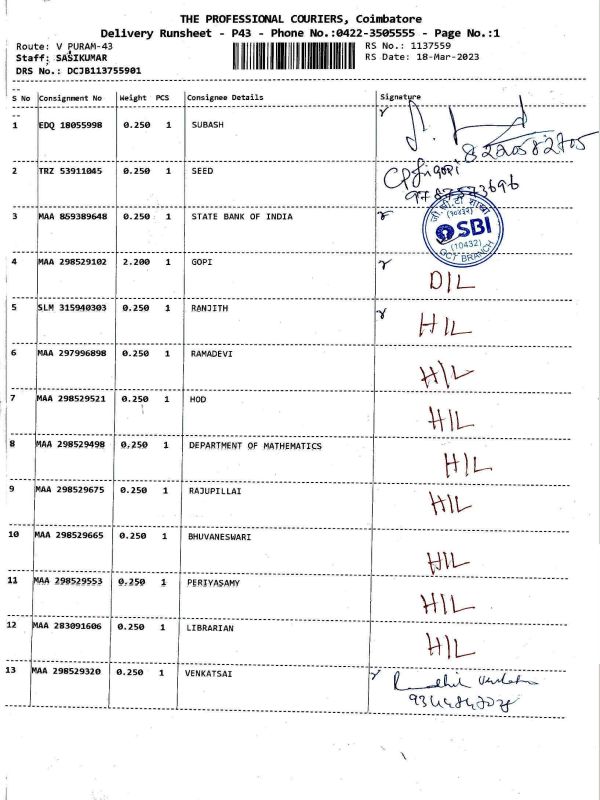 THE PROFESSIONAL COURIERS, Coimbatore
Delivery Runsheet - P43 - Phone No.:0422-3505555 - Page No.:1
Route: V PURAM-43 RS No.: 1137559
Staff: SASIKUMAR RS Date: 18-Mar-2023
DRS No.: DCJB113755901
S No Consignment No Weight PCS Consignee Details Signature
1 EDQ 18055998 0.250 1 SUBASH
8220582705
2 TRZ 53911045 0.250 1 SEED
9787573696
3 MAA 859389648 0.250 1 STATE BANK OF INDIA
SBI
(10432)
GCT BRANCH
4 MAA 298529102 2.200 1 GOPI D/L
5 SLM 315940303 0.250 1 RANJITH H/L
6 MAA 297996898 0.250 1 RAMADEVI H/L
7 MAA 298529521 0.250 1 HOD H/L
8 MAA 298529498 0.250 1 DEPARTMENT OF MATHEMATICS H/L
9 MAA 298529675 0.250 1 RAJUPILLAI H/L
10 MAA 298529665 0.250 1 BHUVANESWARI H/L
11 MAA 298529553 0.250 1 PERIYASAMY H/L
12 MAA 283091606 0.250 1 LIBRARIAN H/L
13 MAA 298529320 0.250 1 VENKATSAI